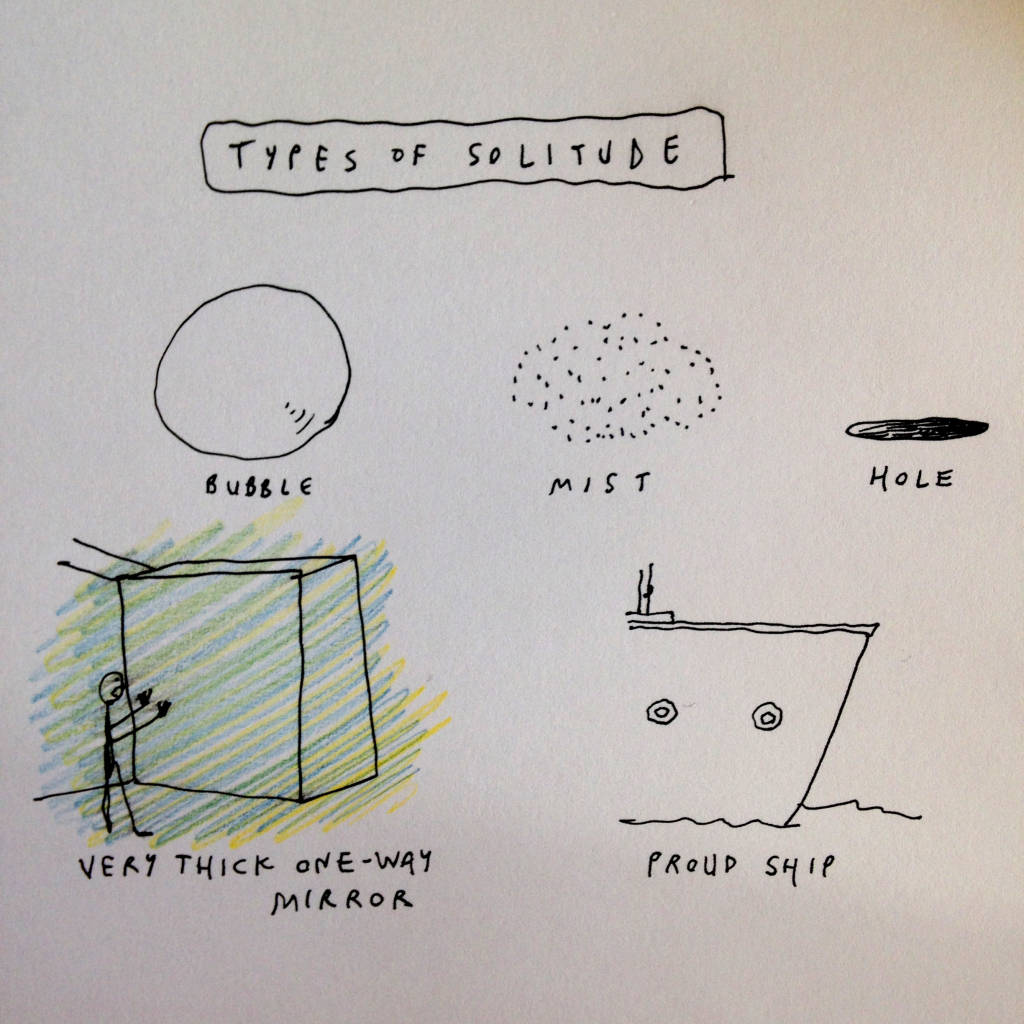 TYPES OF SOLITUDE
BUBBLE
MIST
HOLE
VERY THICK ONE-WAY
MIRROR
PROUD SHIP